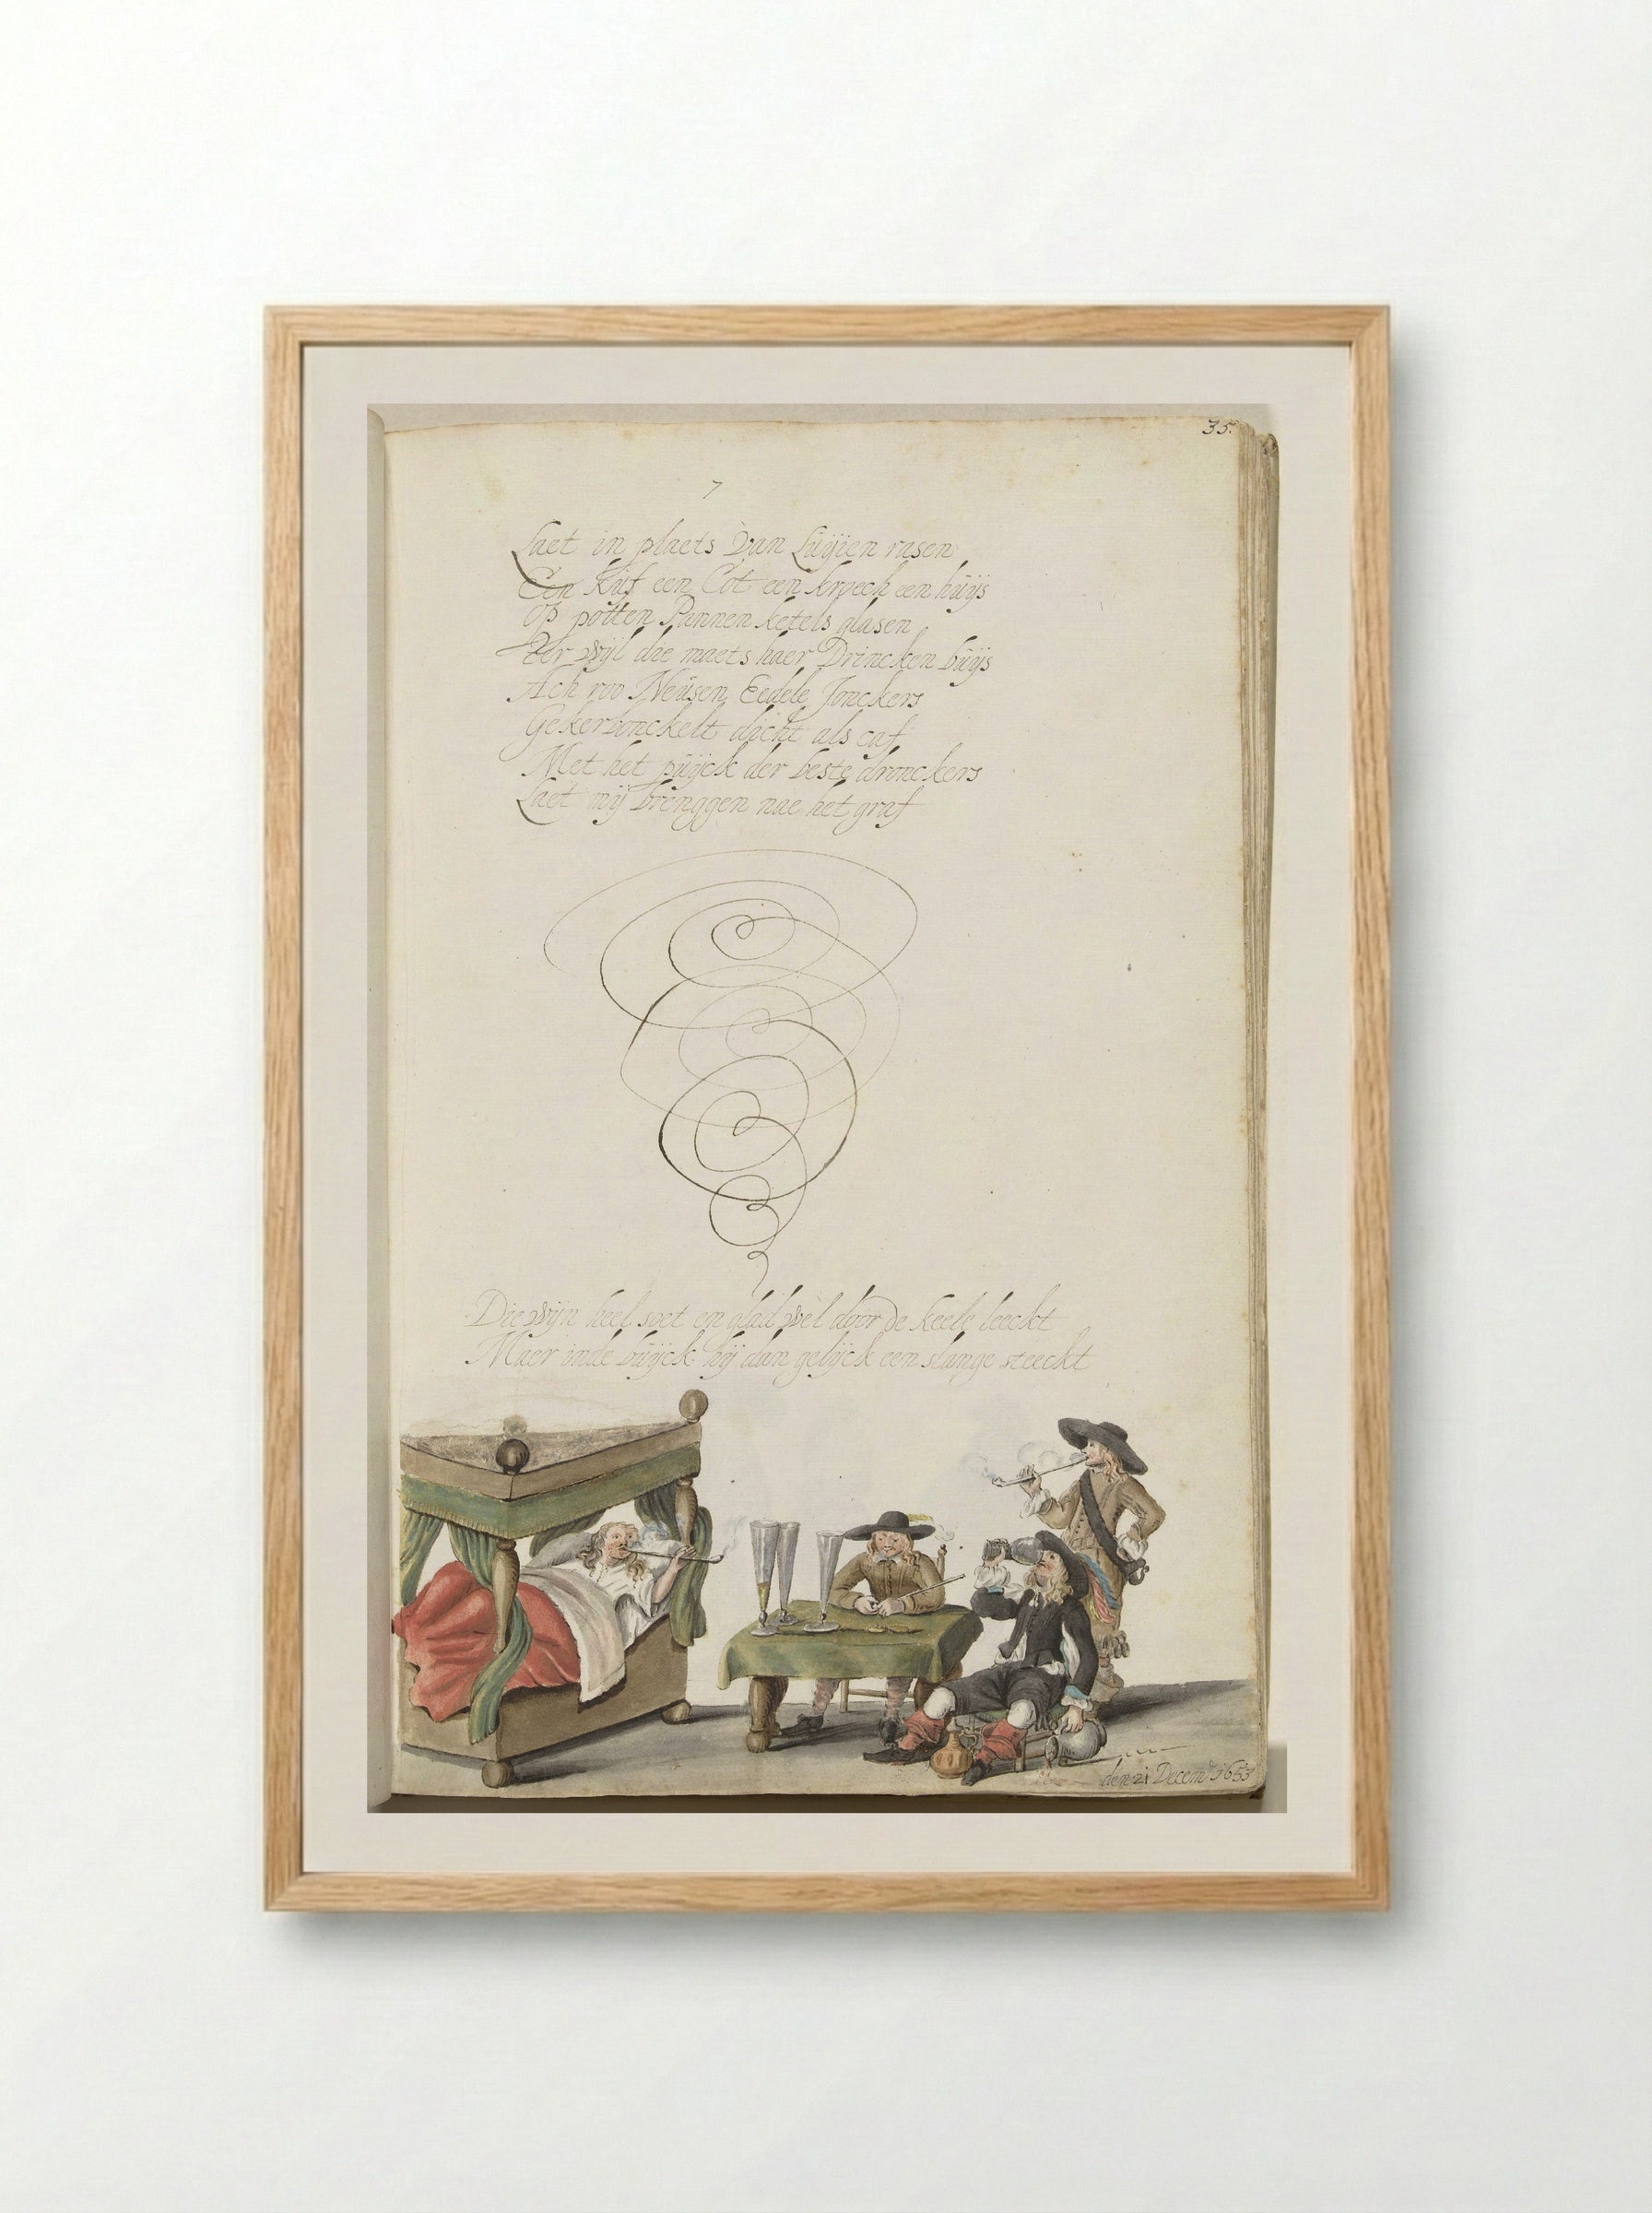 35.
7
Laet in plaets van Luÿien rasen
Een Kuf een Cot een kroech een huÿs
op potten Pannen ketels glasen
Ter wÿl die maets haer Drincken buÿs
Ach roo Neusen Eedele Jonckers
Gekerbonckelt dicht als caf
Met het puÿck der beste dronckers
Laet mÿ brenggen nae het graf
Die wÿn heel soet en glad wel door de keele leeckt
Maer inde buÿck hÿ dan gelÿck een slange steeckt
den 21 Decemb 1653